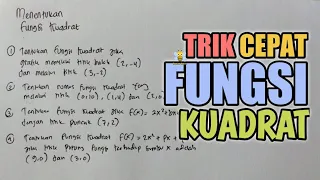 Menentukan
Fungsi Kuadrat
① Tentukan fungsi kuadrat jika
grafik memiliki titik balik (2,-4)
dan melalui titik (3,-2)
② Tentukan rumus fungsi kuadrat yang
melalui titik (0,10), (1,4) dan (2,
③ Tentukan fungsi kuadrat f(x) = 2x²+bx
dengan titik puncak (7,2)
④ Tentukan fungsi kuadrat f(x) = 2x² + px +
jika titik potong fungsi terhadap sumbu x adalah
(5,0) dan (3,0)
TRIK CEPAT
FUNGSI
KUADRAT